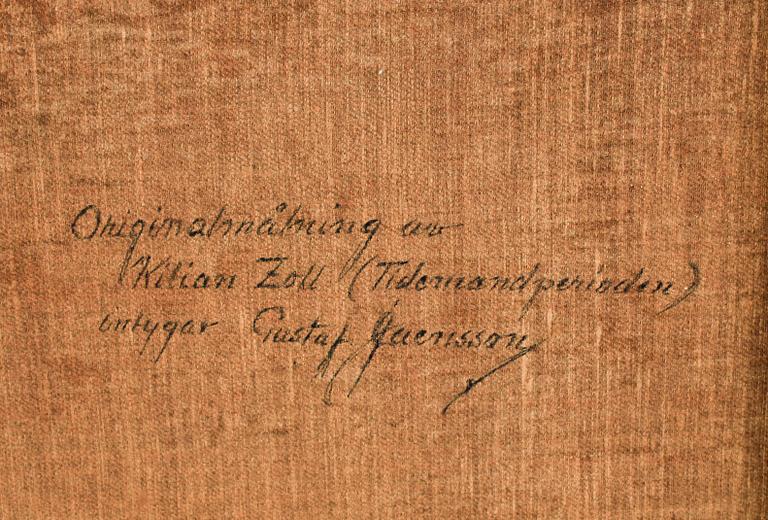 Originalmålning av
Kilian Zoll (Tidemandperioden)
intygar Gustaf